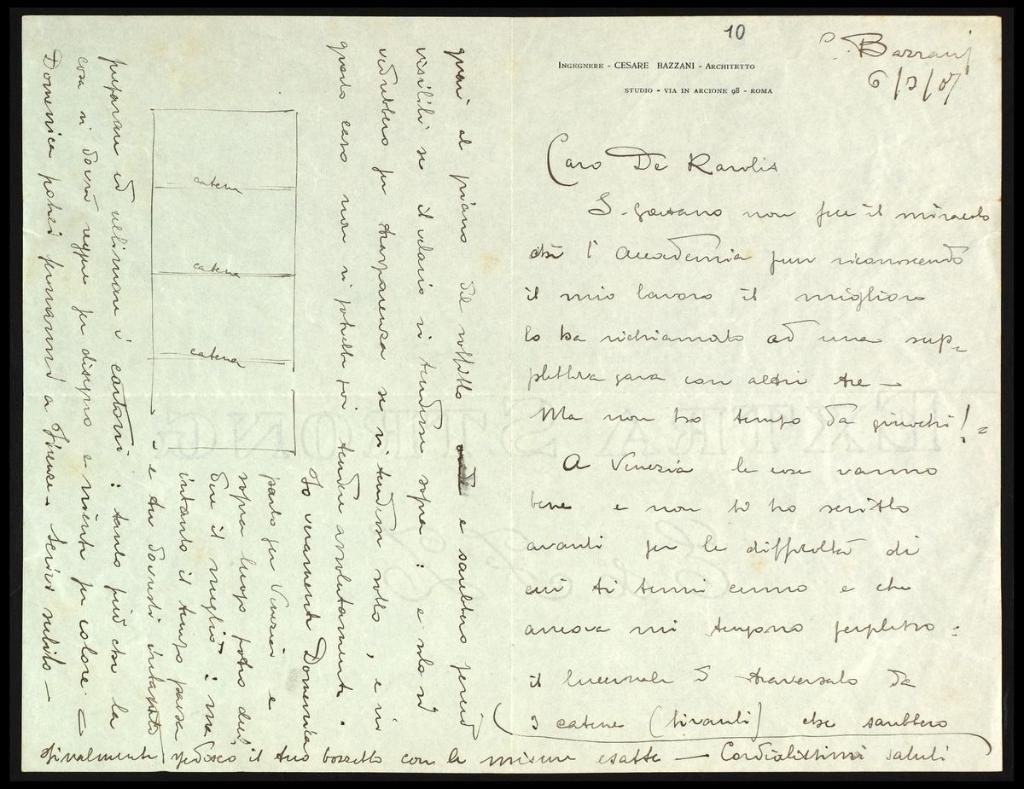 10
C. Bazzani
6/3/07
INGEGNERE - CESARE BAZZANI - ARCHITETTO
STUDIO - VIA IN ARCIONE 98 - ROMA
Caro De Karolis
S. Gaetano non fece il miracolo
chè l'Accademia pur riconoscendo
il mio lavoro il migliore
lo ha richiamato ad una sup=
plettiva gara con altri tre —
Ma non ho tempo da giuochi! =
A Venezia le cose vanno
bene e non ti ho scritto
avanti per le difficoltà di
cui ti tenni cenno e che
ancora mi tengono perplesso:
il lucernale è traversato da
3 catene (tiranti) che sarebbero
quasi al piano del soffitto e sarebbero perciò
visibili se il velario si tendesse sopra: e solo si
vedrebbero per trasparenza se si tendesse sotto, e in
questo caso non si potrebbe poi tendere assolutamente.
Io veramente Domenica
parto per Venezia e
sopra luogo potrò deci
dere il meglio: ma
intanto il tempo passa
e tu dovresti intanto
catena
catena
catena
preparare ed ultimare i cartoni: tanto più che la
cosa si dovrà reggere per disegno e niente per colore —
Domenica potrei fermarmi a Firenze. Scrivi subito —
finalmente spedisco il tuo bozzetto con le misure esatte — Cordialissimi saluti
EXTRA STRONG